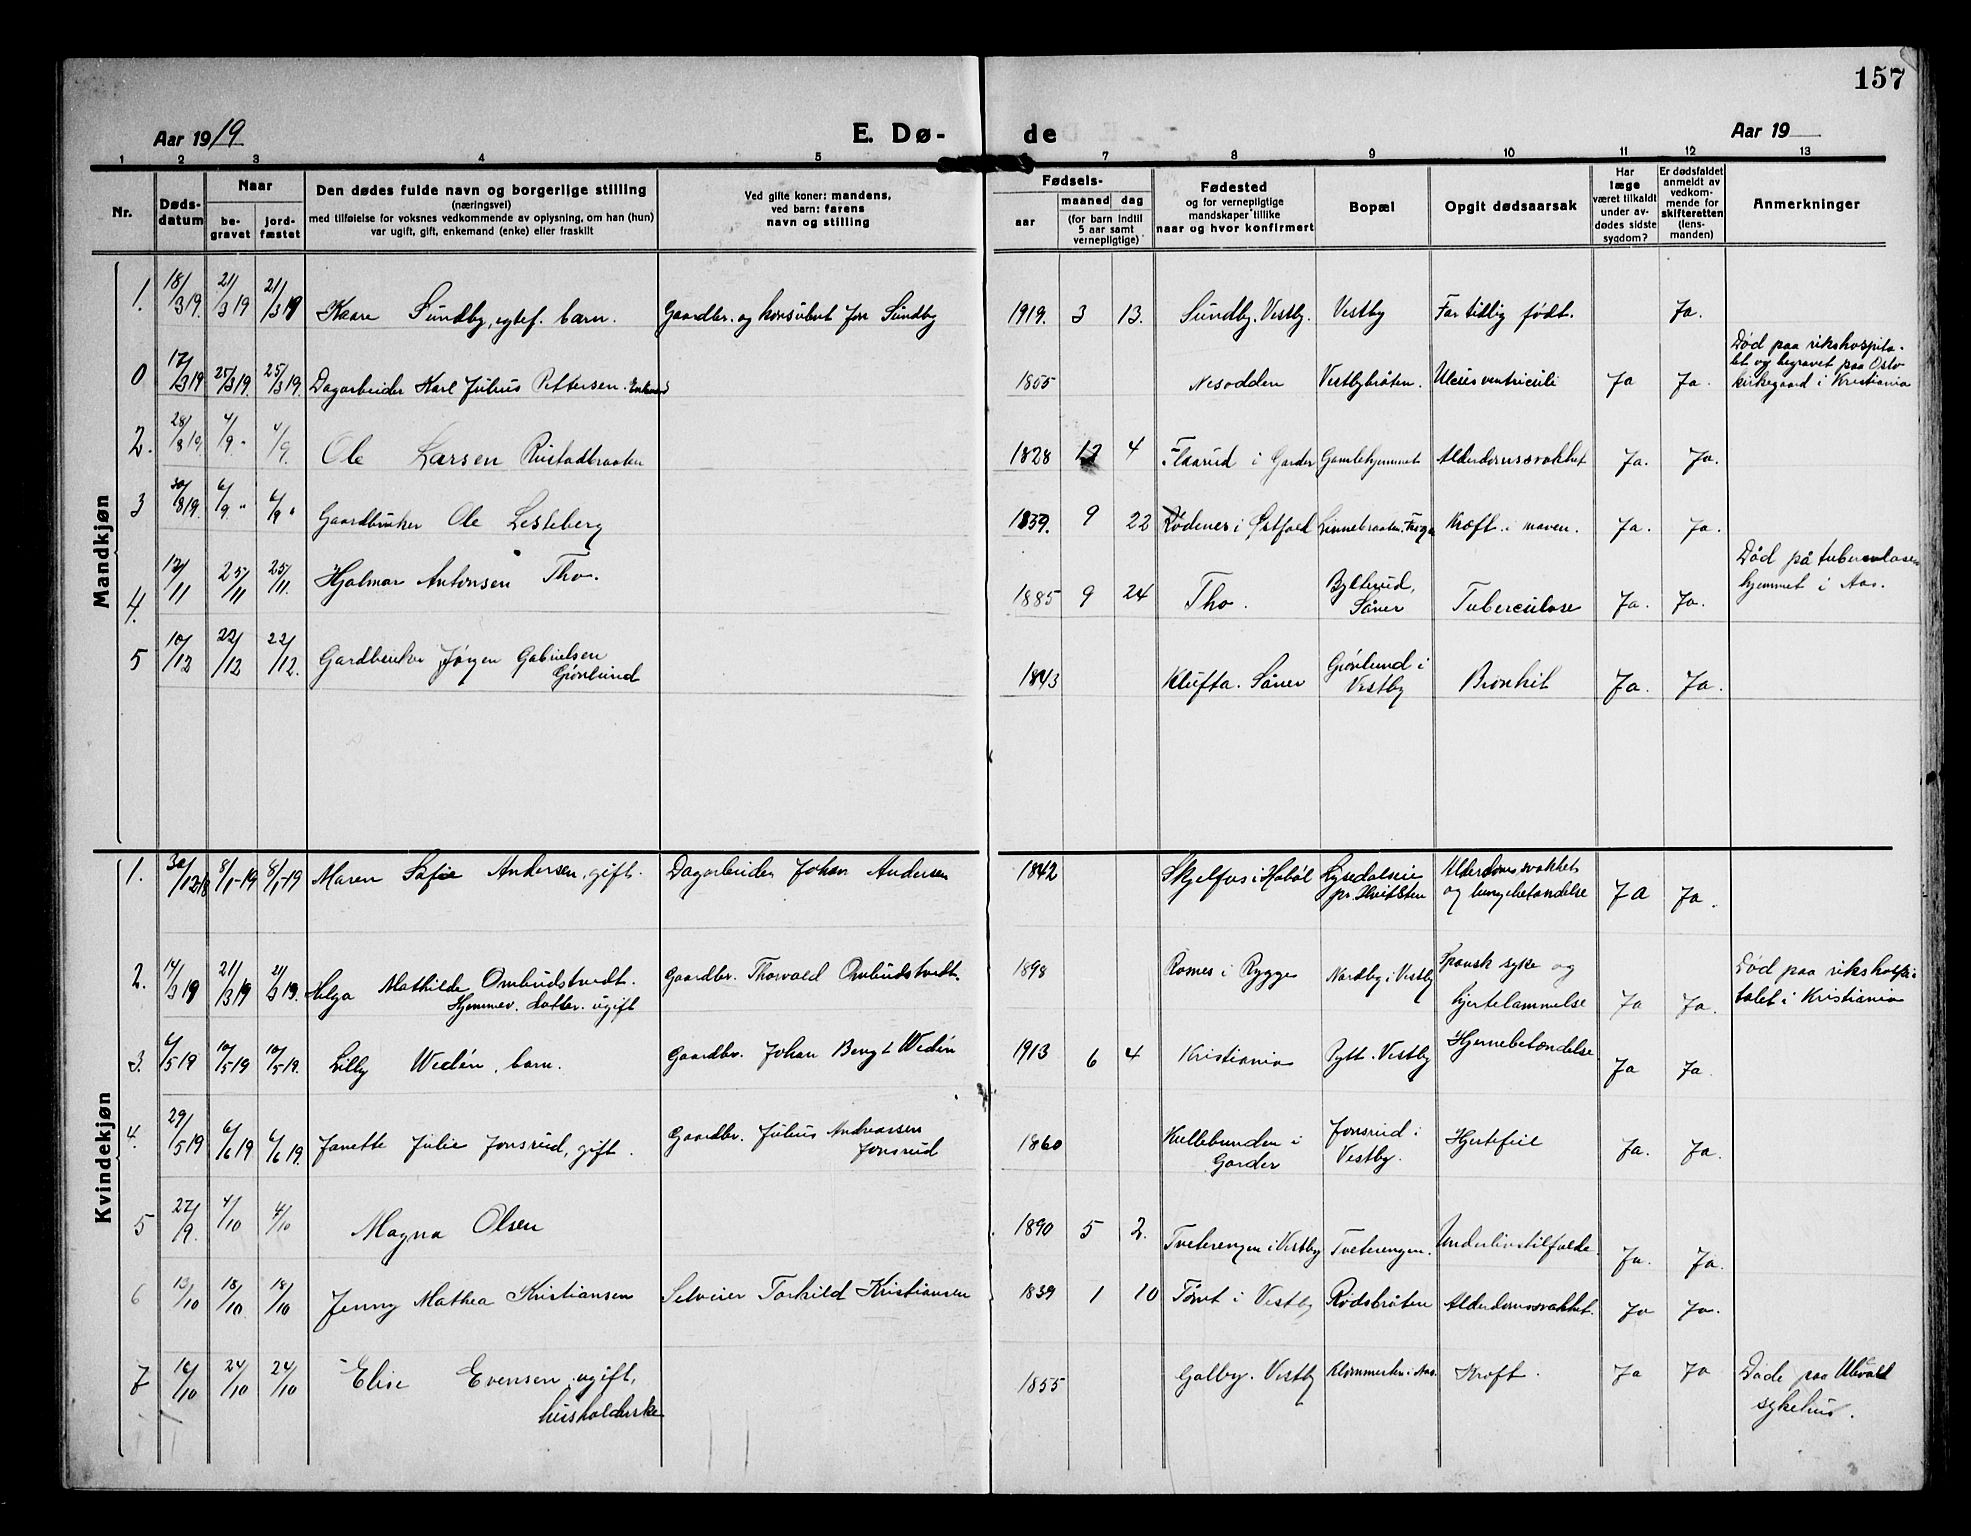 157
Aar 1919 E. Dø- de Aar 19
1 2 3 4 5 7 8 9 10 11 12 13
Nr.
Døds-
datum
Naar
be-
gravet
jord-
fæstet
Den dødes fulde navn og borgerlige stilling
(næringsvei)
med tilføielse for voksnes vedkommende av oplysning, om han (hun)
var ugift, gift, enkemand (enke) eller fraskilt
Ved gifte koner: mandens,
ved barn: farens
navn og stilling
Fødsels-
aar
maaned dag
(for barn indtil
5 aar samt
vernepligtige)
Fødested
og for vernepligtige
mandskaper tillike
naar og hvor konfirmert
Bopæl
Opgit dødsaarsak
Har
læge
været tilkaldt
under av-
dødes sidste
sygdom?
Er dødsfaldet
anmeldt av
vedkom-
mende for
skifteretten
(lens-
manden)
Anmerkninger
Mandkjøn
1. 18/3 19. 21/3 19 21/3 19 Kaare Sundby, egtef. barn. Gaardbr. og Sundby 1919. 3 13. Sundby. Vestby. Vestby For tidlig født. Ja.
0 17/3 19 25/3 19. 25/3 19. Dagarbeider Karl Julius Pettersen. 1855 Nesodden Vestbybråten. Ulcus ventriculi Ja Ja. Død paa rikshospita-
let og begravet paa Oslo
kirkegaard i Kristiania
2. 28/8 19. 4/9 " 4/9. Ole Larsen Rustadbraaten 1828 12 4 Flaarud i Garder Gamlehjemmet Alderdomssvakhet Ja. Ja.
3 30/8 19. 6/9. " 6/9 " Gaardbruker Ole Lesteberg 1839. 9 22 Rødenes i Østfold Kræft i maven. Ja. Ja.
4. 12/11 25/11 25/11. Hjalmar Antonsen Tho. 1885 9 24 Tho. Bylterud,
Såner Tuberculose Ja. Ja. Død på tuberculose
hjemmet i Aas.
5 10/12 22/12 22/12. Gardbruker Jørgen Gabrielsen
Grønlund 1843 Klufta. Såner Grønlund i
Vestby Bronkit Ja. Ja.
Kvindekjøn
1. 30/12 18 8/1-19 8/1-19 Maren Sofie Andersen, gift. Dagarbeider Johan Andersen 1842 Skjelfos i Hobøl Lysedalseie
pr. Hvitsten Alderdomssvakhet
og lungebetændelse Ja Ja.
2. 14/3 19 21/3 19 21/3 19. Helga Mathilde Ombudstvedt.
Hjemmev. datter. ugift Gaardbr. Thorvald Ombudstvedt. 1898 Romes i Rygge Nordby i Vestby Spansk syke og
hjertelammelse Ja Ja. Død paa rikshospi-
talet i Kristiania
3. 6/5 19 10/5-19 10/5-19. Lilly Wedén, barn. Gaardbr. Johan Bengt Wedén 1913 6 4 Kristiania Pytt. Vestby Hjernebetændelse Ja Ja.
4. 29/5 19 6/6 19 6/6 19. Janette Julie Jonsrud, gift. Gaardbr. Julius Andreassen
Jonsrud 1860 Kullebunden i
Garder Jonsrud i
Vestby. Hjertefeil Ja. Ja.
5 27/9. 4/10 4/10 Magna Olsen 1890 5 2. Tveterengen i Vestby Tveterengen. Underlivstilfælde. Ja. Ja.
6 13/10 18/10 18/10 Jenny Mathea Kristiansen Selveier Torkild Kristiansen 1839 1 10 i Vestby Rødsbråten Alderdomssvakhet. Ja Ja.
7 16/10 24/10 24/10 Elise Evensen, ugift,
husholderske 1855 Galby. Vestby i Aas. Kræft. Ja Ja Døde paa Ullevål
sykehus.